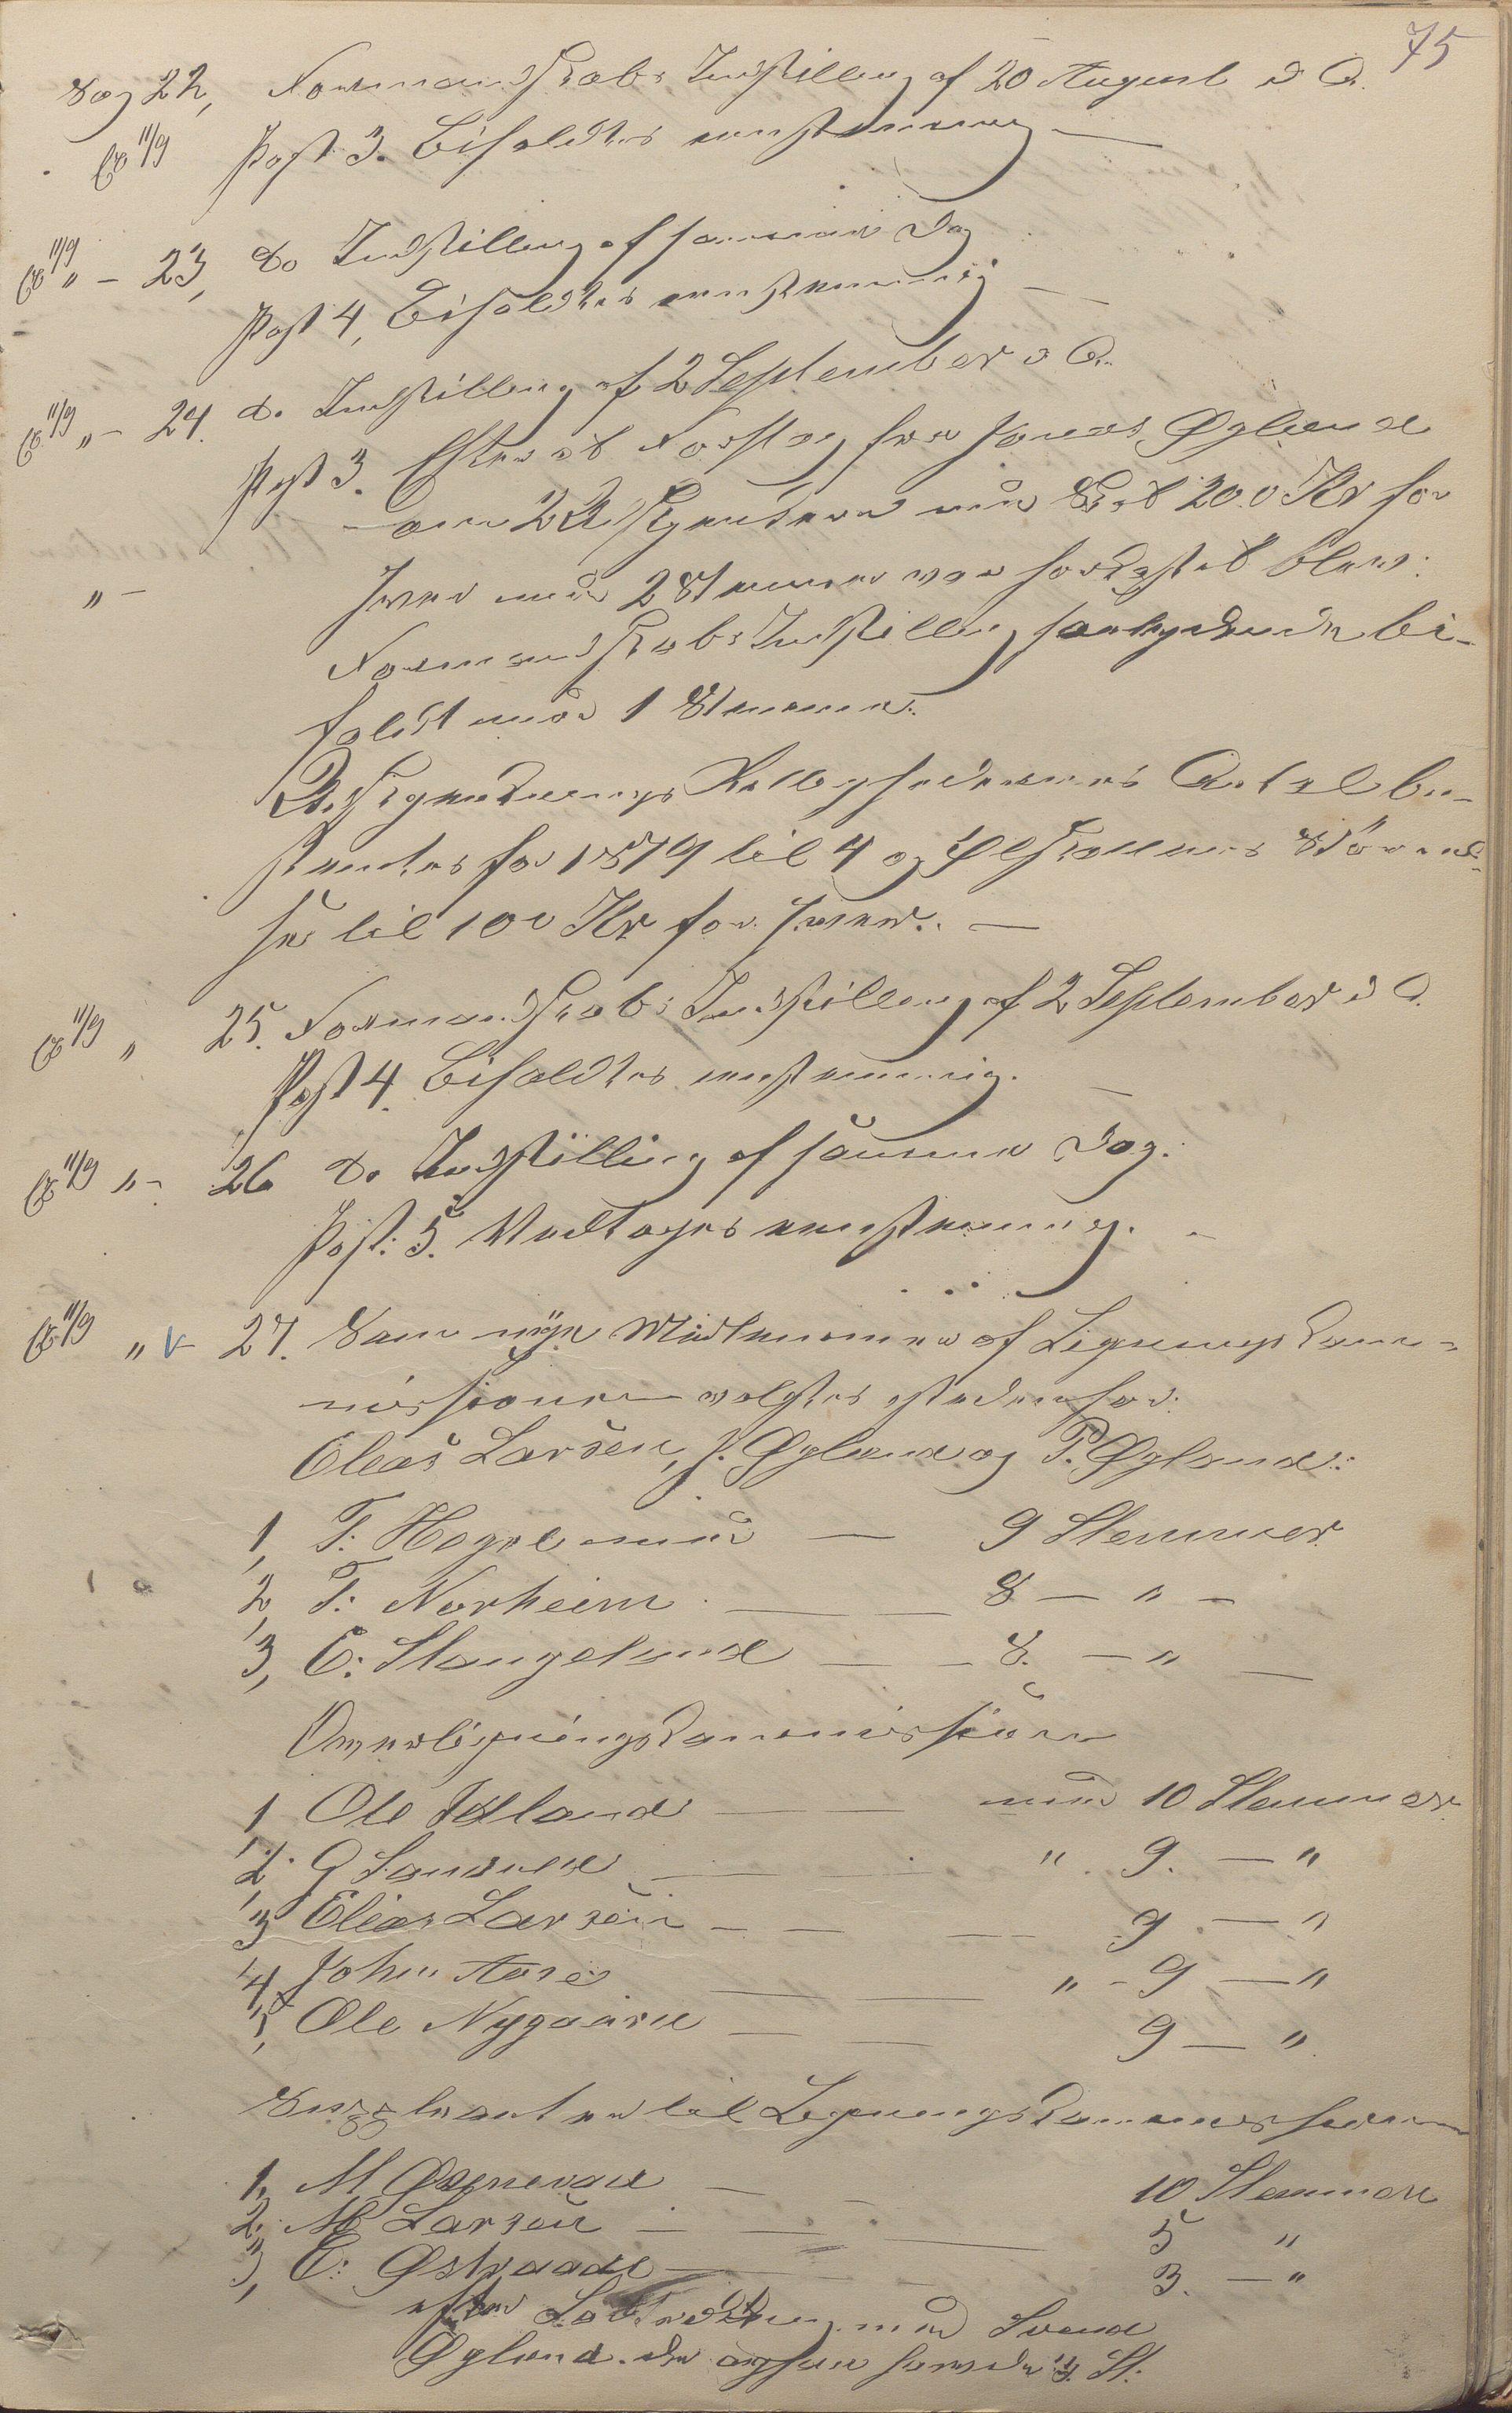 75
Sag 22, Formandskabs Indstilling af 20 August d A.
Ex 11/9 Post 3. Bifaldtes enstemmig —
Ex 11/9 " - 23, do Indstilling af samme Dag
Post 4, Bifaldtes enstemmig —
Ex 11/9 " - 24. do Indstilling af 2 September d A.
Post 3. Efterat Forslag fra Jonas Øglænd
om 2 Betjenter med 200 Kr for
" - hver med 2 Stemmer var forkastet blev:
Formandskabs Indstilling saalydende bi-
faldt med 1 Stemme.
Kolleghedernes Antal be-
stemtes for 1879 til 4 og
til 100 Kr for hver. —
Ex 11/9 " 25. Formandskabs Indstilling af 2 September d A.
Post 4. Bifaldtes enstemmig. —
Ex 11/9 " - 26 do Indstilling af samme Dag.
Post: 5. Vedtages enstemmig. -
Ex 11/9 " v 27. Som nye Medlemmer af Ligningskom-
missionen valgtes istedenfor:
Elias Larsen, J. Øglænd og P. Øglænd:
1, T. Hognl med — 9 Stemmer
2, T: Norheim — — 8 — " -
3, E: Stangeland — — 8. — " —
Overligningskommissionen
1 Ole Idland — — med 10 Stemmer
2. G Sandved — — " 9. — "
3 Elias Larsen — — 9 — "
4, John Aase — — " - 9 — "
5, Ole Nygaard — — 9 — "
Suppleanter til Ligningskommissionen
1, M Osmevad — — 10 Stemmer
2. M Larsen — — 5 "
3, E: Østraadt — — 3. — "
efter Lodtrækning med Svend
Øglænd. der ogsaa havde 3. St: